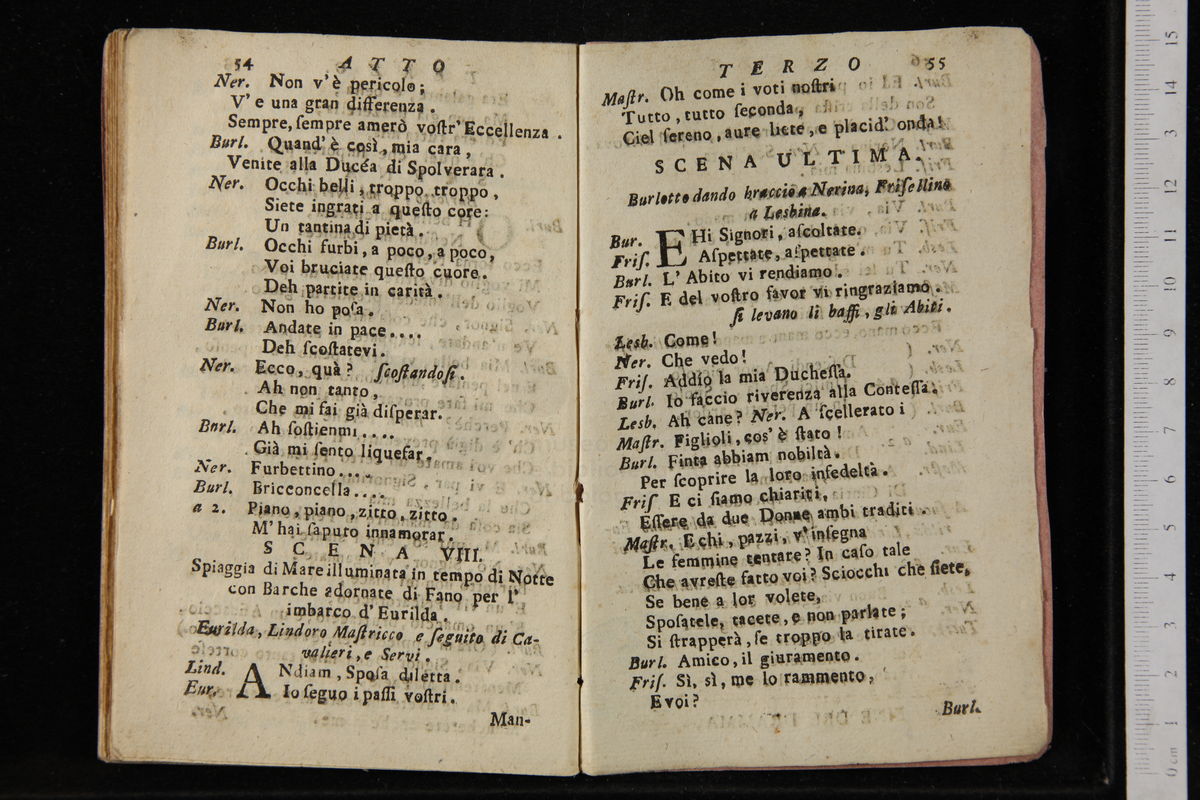 54 ATTO
Ner. Non v'è pericolo;
V'e una gran differenza.
Sempre, sempre amerò voſtr'Eccellenza.
Burl. Quand'è così, mia cara,
Venite alla Ducéa di Spolverara.
Ner. Occhi belli, troppo troppo,
Siete ingrati a queſto core:
Un tantina di pietà.
Burl. Occhi furbi, a poco, a poco,
Voi bruciate queſto cuore.
Deh partite in carità.
Ner. Non ho poſa.
Burl. Andate in pace....
Deh ſcoſtatevi.
Ner. Ecco, quà? ſcoſtandoſi.
Ah non tanto,
Che mi fai già diſperar.
Bnrl. Ah ſoſtienmi....
Già mi ſento liquefar.
Ner. Furbettino....
Burl. Bricconcella....
a 2. Piano, piano, zitto, zitto,
M'hai ſaputo innamorar.
SCENA VIII.
Spiaggia di Mare illuminata in tempo di Notte
con Barche adornate di Fano per l'
imbarco d'Eurilda.
Eurilda, Lindoro Maſtricco e ſeguito di Ca-
valieri, e Servi.
Lind. ANdiam, Spoſa diletta.
Eur. Io ſeguo i paſſi voſtri.
Man-
TERZO 55
Maſtr. Oh come i voti noſtri
Tutto, tutto ſeconda,
Ciel ſereno, aure liete, e placid' onda!
SCENA ULTIMA.
Burlotto dando braccio a Nerina, Friſellino
a Lesbina.
Bur. EHi Signori, aſcoltate.
Friſ. Aſpettate, aſpettate.
Burl. L'Abito vi rendiamo.
Friſ. E del voſtro favor vi ringraziamo.
ſi levano li baffi, gli Abiti.
Lesb. Come!
Ner. Che vedo!
Friſ. Addio la mia Ducheſſa.
Burl. Io faccio riverenza alla Conteſſa.
Lesb. Ah cane? Ner. A ſcellerato i
Maſtr. Figlioli, cos'è ſtato!
Burl. Finta abbiam nobiltà.
Per ſcoprire la loro infedeltà.
Friſ E ci ſiamo chiariti,
Eſſere da due Donne ambi traditi.
Maſtr. E chi, pazzi, v'inſegna
Le femmine tentare? In caſo tale
Che avreſte fatto voi? Sciocchi che ſiete,
Se bene a lor volete,
Spoſatele, tacete, e non parlate;
Si ſtrapperà, ſe troppo la tirate.
Burl. Amico, il giuramento.
Friſ. Sì, sì, me lo rammento,
E voi?
Burl.